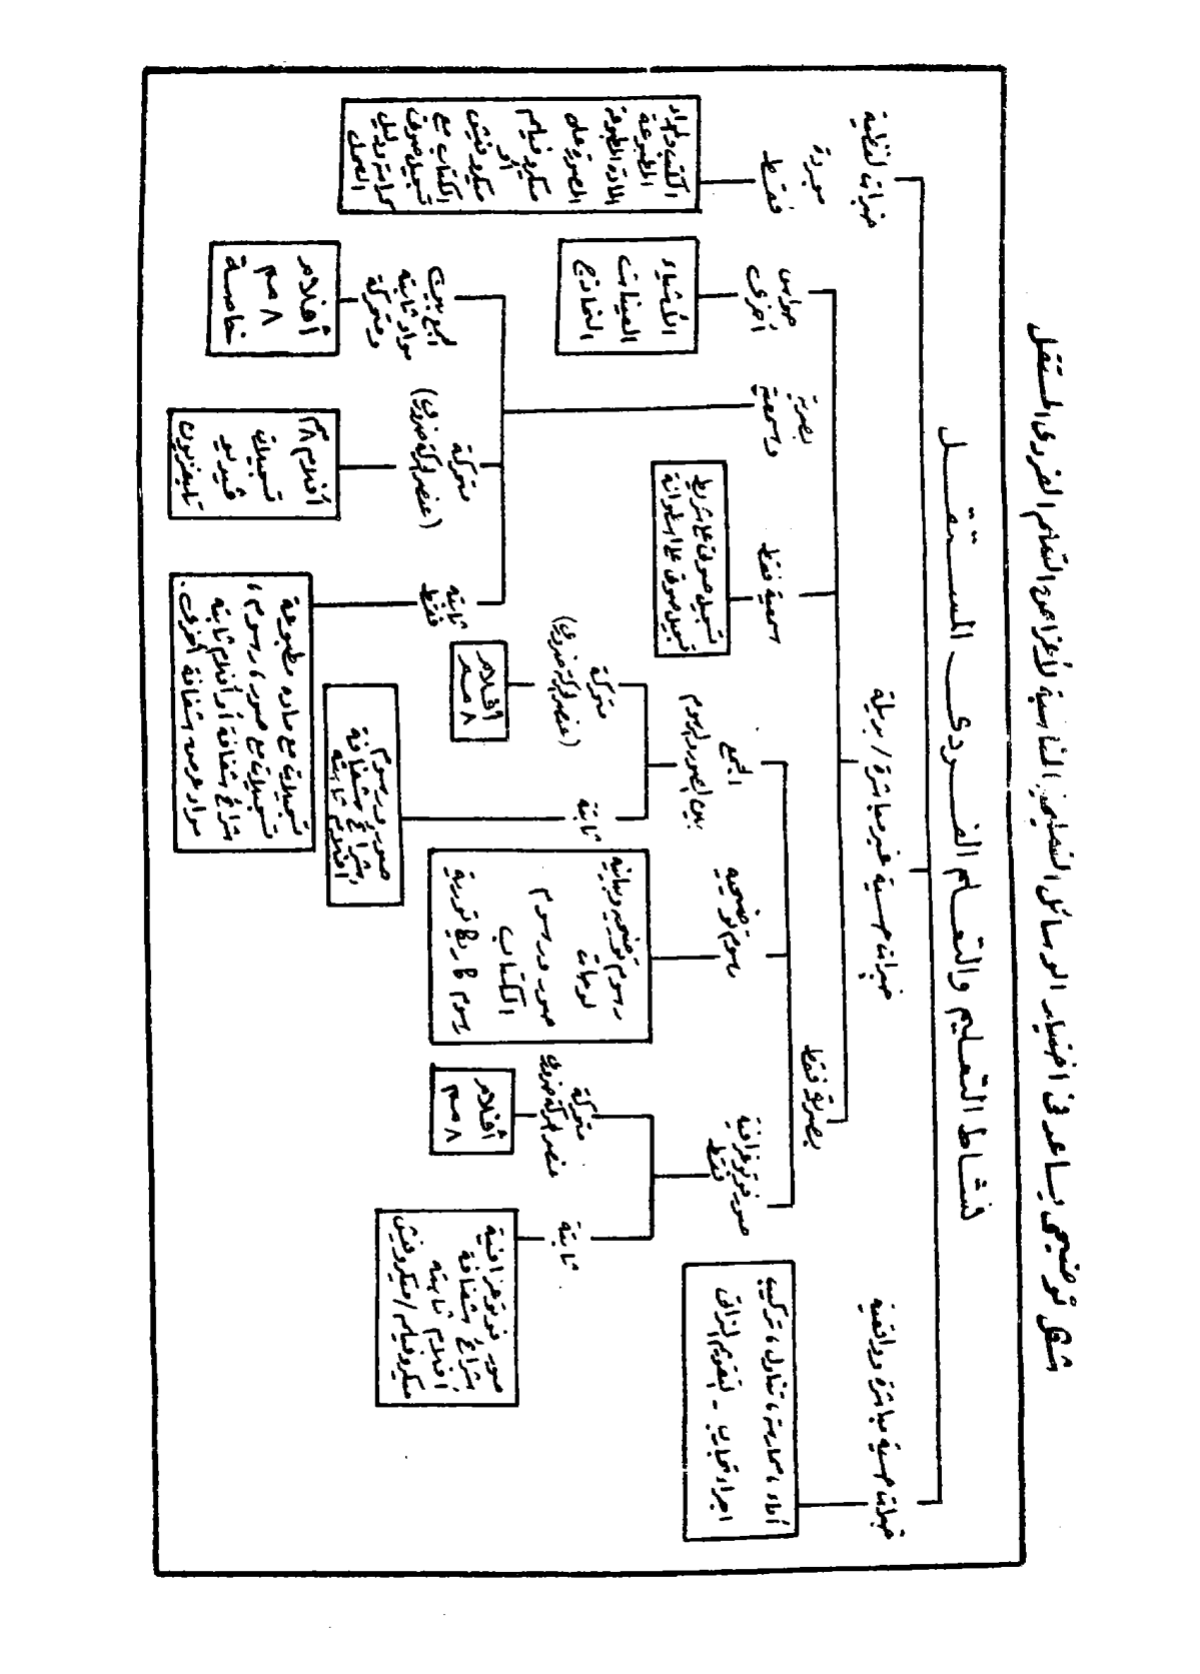 شكل توضيحى يساعد فى اختيار الوسائل التعليمية المناسبة لأغراض التعلم الفردى المستقل
نشاط التعليم والتعلم الفردى المستقل
خبرات حسية مباشرة وواقعية
أداء، ممارسة، تناول، تركيب
اجراء تجارب -
خبرات حسية غير مباشرة / بديلة
بصرية فقط
صور فوتوغرافية
فقط
ثابتة
صور فوتوغرافية
شرائح شفافة
أفلام ثابته
ميكروفيلم/ميكروفيش
متحركة
عنصر الحركة ضرورى
أفلام
٨ مم
رسوم توضيحية
رسوم توضيحية وبيانية
لوحات
صور ورسوم
الكتاب
رسوم كاريكاتورية
الجمع
بين الصور والرسوم
ثابتة
صور ورسوم
شرائح شفافة
أفلام ثابته
متحركة
(عنصر الحركة ضرورى)
أفلام
٨ مم
سمعية فقط
تسجيل صوتى على شريط
تسجيل صوتى على اسطوانة
بصرية
وسمعية
ثابتة
فقط
تسجيلات مع مادة مطبوعة
تسجيلات مع صور، رسوم،
شرائح شفافة أو أفلام ثابته
مواد عرض شفافة أخرى.
متحركة
(عنصر الحركة ضرورى)
أفلام ٨ مم
تسجيلات
فيديو
تليفزيون
الجمع بين
مواد ثابتة
ومتحركة
أفلام
٨ مم
خاصة
حواس
أخرى
الأشياء
العينات
النماذج
خبرات لفظية
مجردة
فقط
الكتب والمواد
المطبوعة
المادة المطبوعة
المصورة على
ميكروفيلم
أو
ميكروفيش
الكتاب مع
تسجيل صوتى
العمل